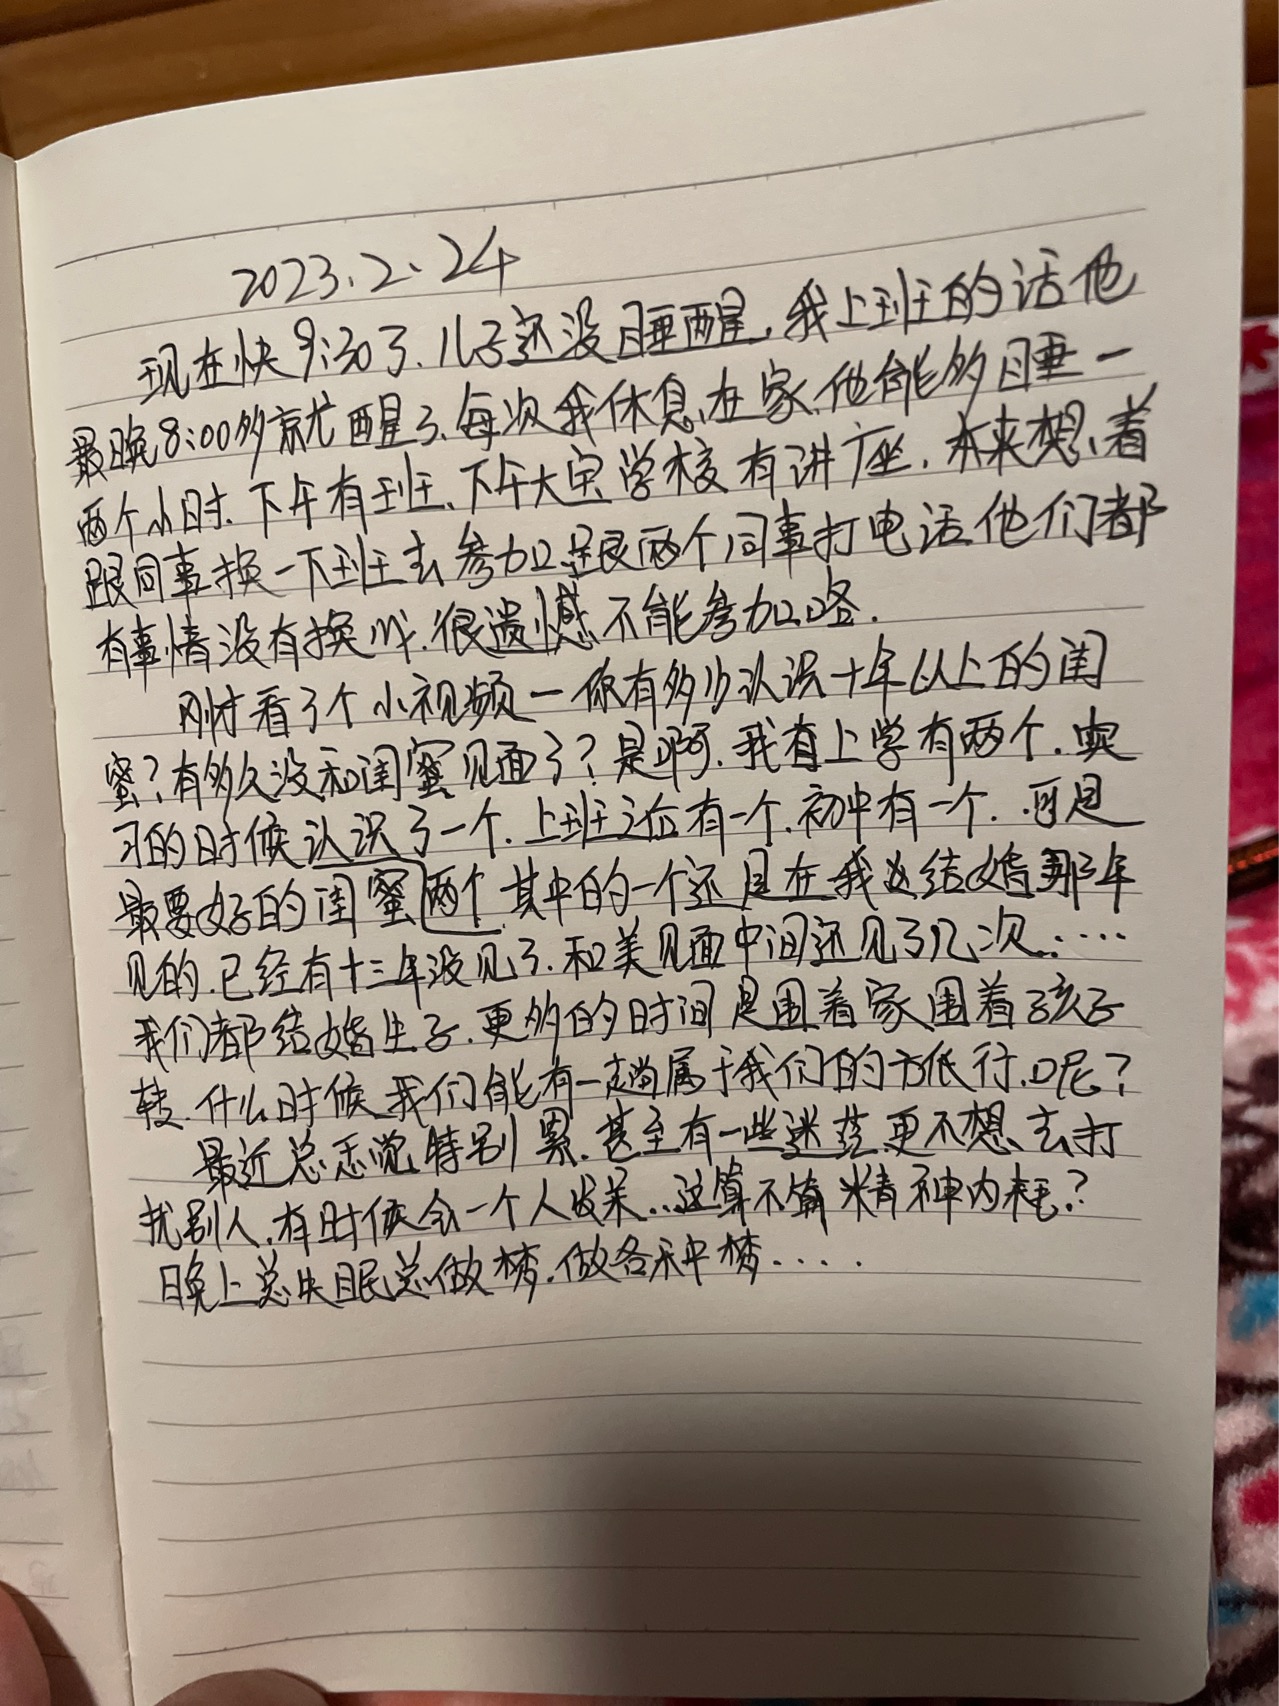 2023.2.24
现在快9:30了.儿子还没睡醒.我上班的话他
最晚8:00多就醒了.每次我休息在家.他能多睡一
两个小时.下午有班.下午大宝学校有讲座.本来想着
跟同事换一下班去参加.跟两个同事打电话他们都
有事情没有换成.很遗憾不能参加咯.
刚才看了个小视频一你有多少认识十年以上的闺
蜜?有多久没和闺蜜见面了?是啊.我有上学有两个.实
习的时候认识了一个.上班之后有一个.初中有一个.可是
最要好的闺蜜两个.其中的一个还是在我结婚那年
见的.已经有十三年没见了.和美见面中间还见了几次.....
我们都结婚生子.更多的时间是围着家围着孩子
转.什么时候我们能有一趟属于我们的旅行.呢?
最近总感觉特别累.甚至有一些迷茫.更不想去打
扰别人.有时候会一个人发呆...这算不算精神内耗?
晚上总失眠总做梦.做各种梦.....